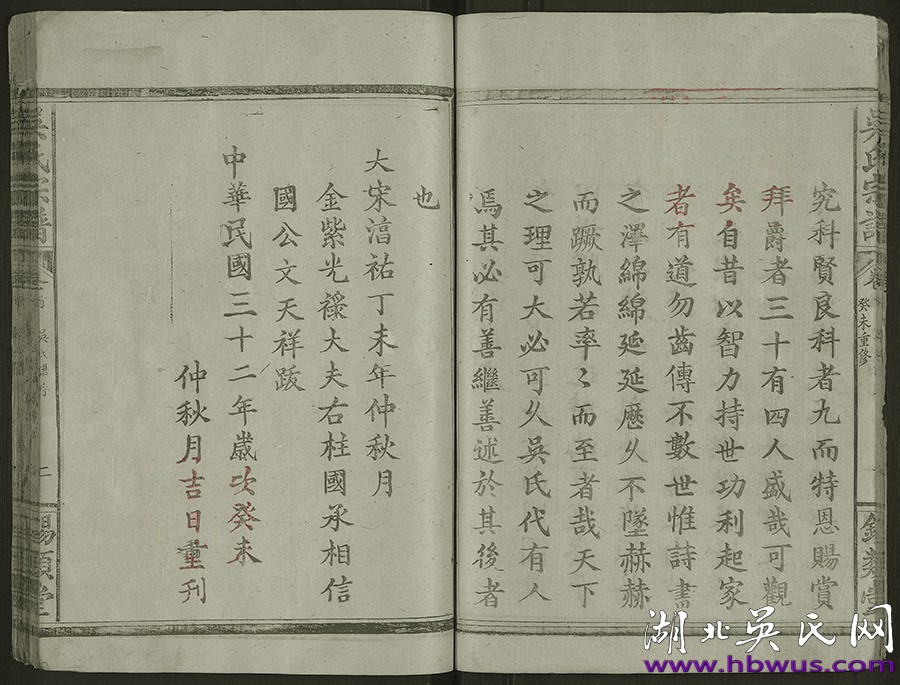 吳氏宗譜
卷
癸未重修
錫類堂
究科賢良科者九而特恩賜賞
拜爵者三十有四人盛哉可觀
矣自昔以智力持世功利起家
者有道勿齒傳不數世惟詩書
之澤綿綿延延歷久不墜赫赫
而蹶孰若率〻而至者哉天下
之理可大必可久吳氏代有人
焉其必有善繼善述於其後者
也
大宋湻祐丁未年仲秋月
金紫光祿大夫右柱國承相信
國公文天祥跋
中華民國三十二年歲次癸未
仲秋月吉日重刊
吳氏宗譜
二
錫類堂
湖北吴氏网
www.hbwus.com